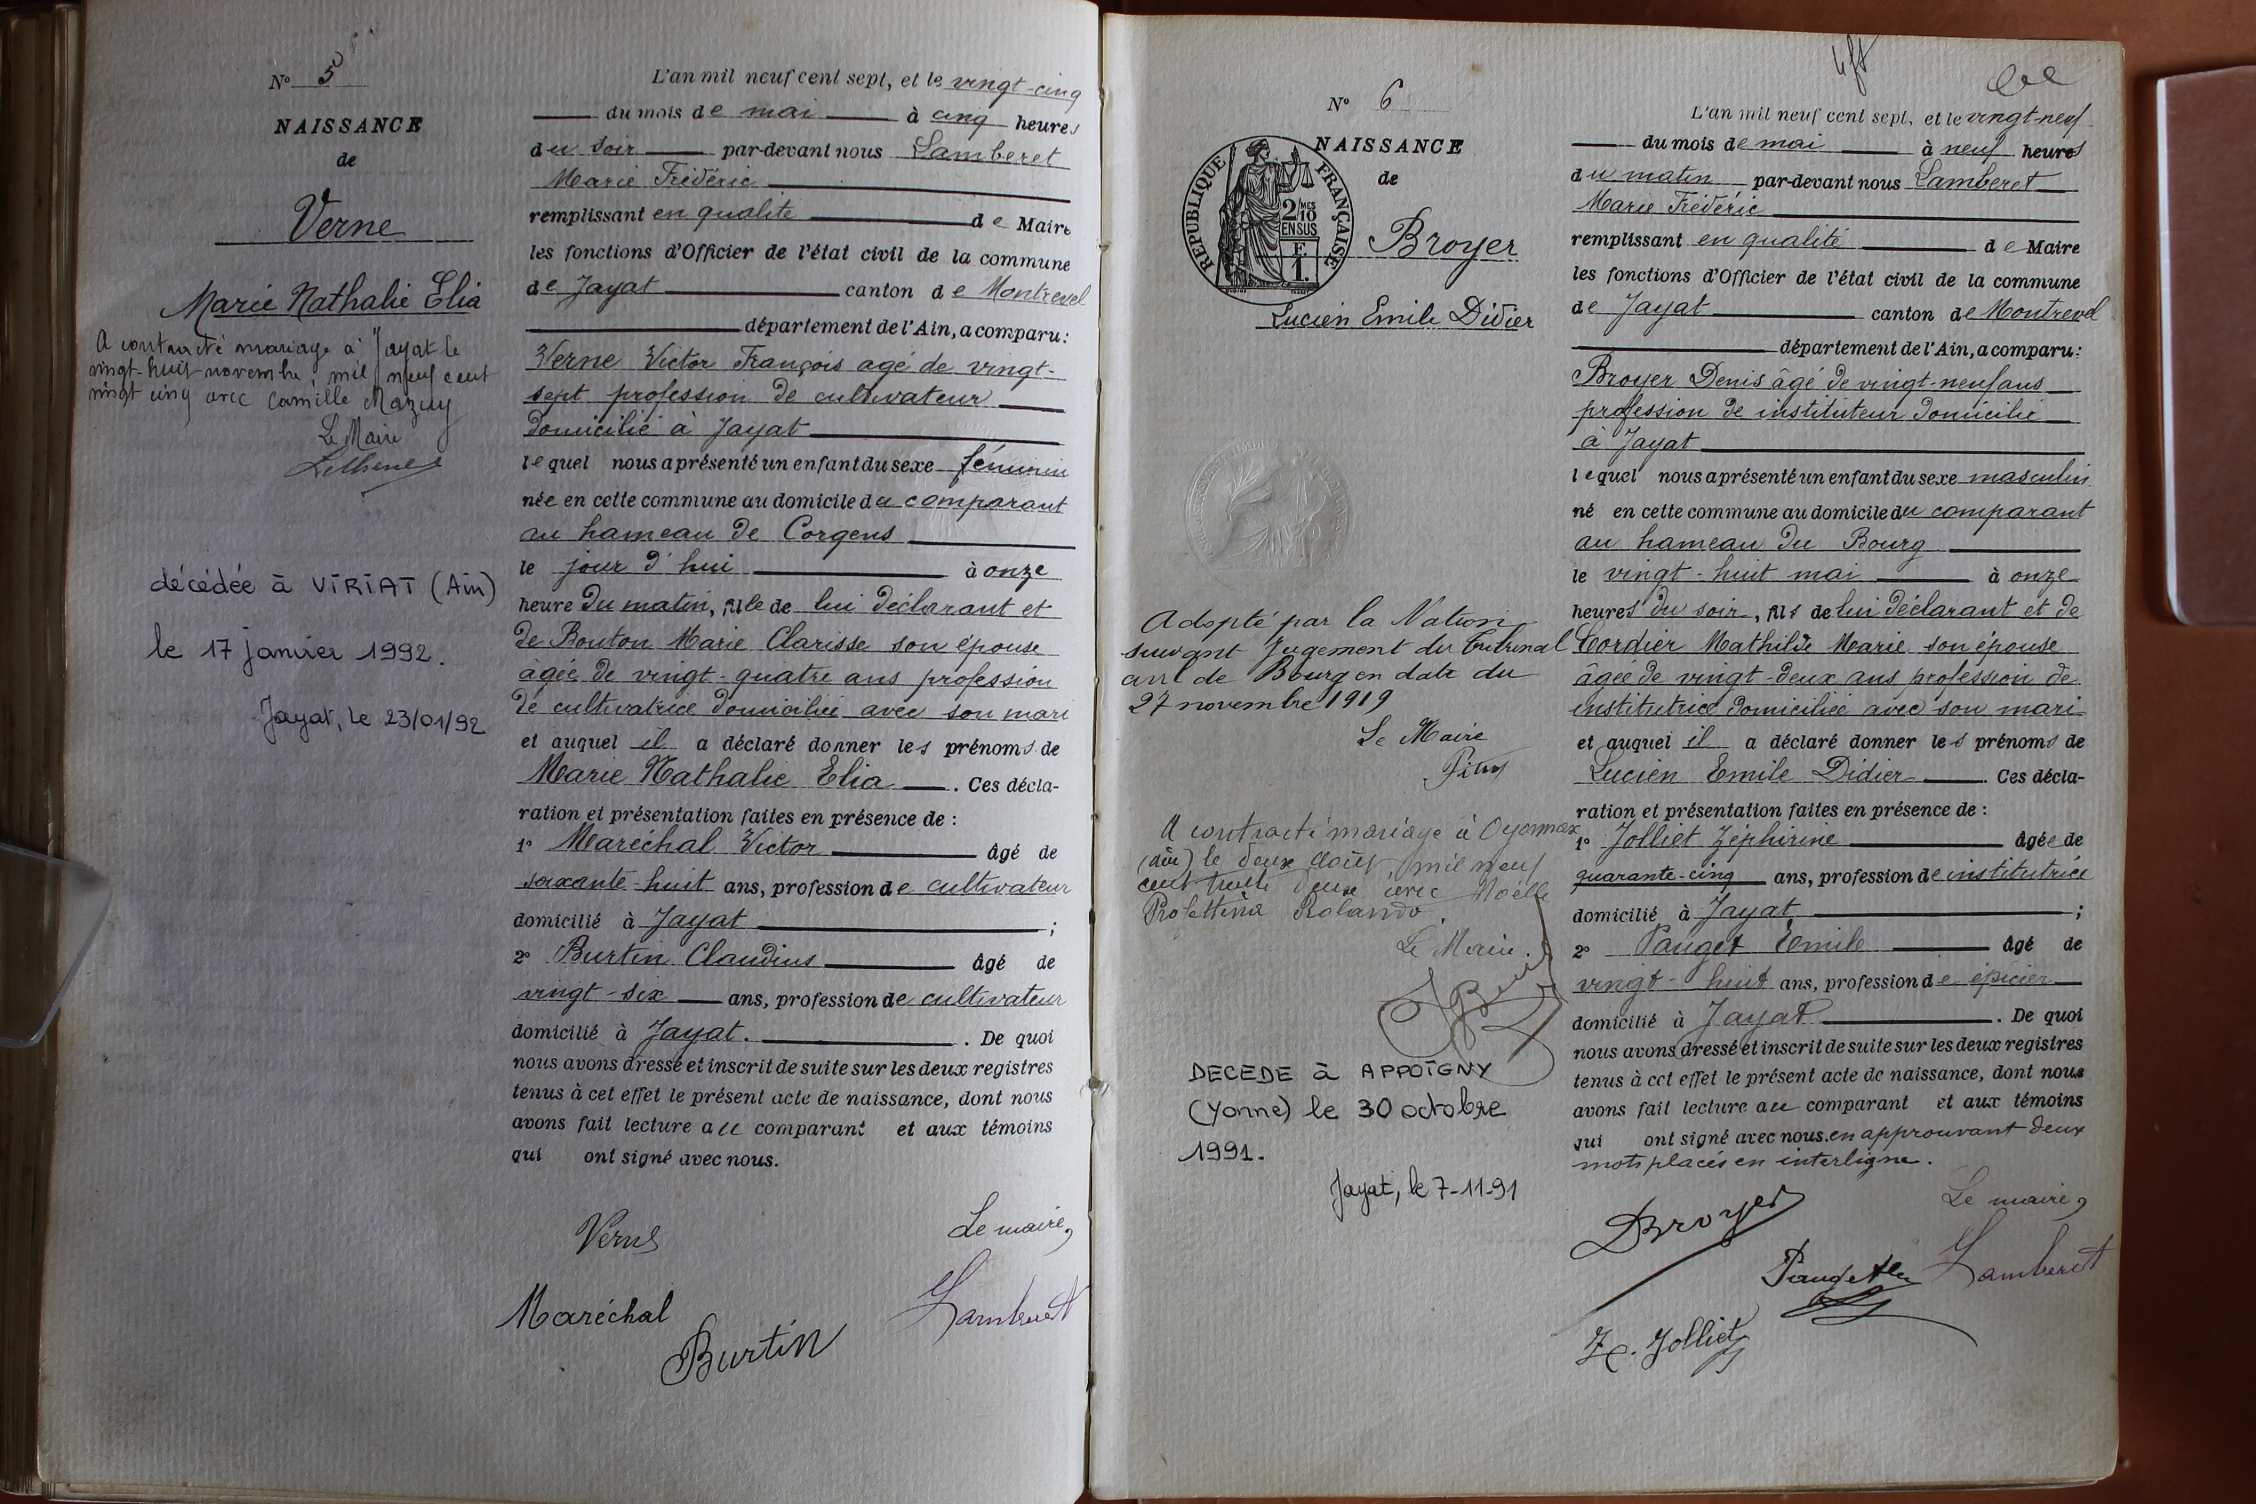 N° 5
NAISSANCE
de
Verne
Marie Nathalie Elia
A contracté mariage à Jayat le
vingt-huit novembre, mil neuf cent
vingt cinq avec Camille Mazuy
Le Maire
décédée à VIRIAT (Ain)
le 17 janvier 1992.
Jayat, le 23/01/92
L'an mil neuf cent sept, et le vingt-cinq
du mois de mai à cinq heures
du soir par-devant nous Lamberet
Marie Frédéric
remplissant en qualité de Maire
les fonctions d'Officier de l'état civil de la commune
de Jayat canton de Montrevel
département de l'Ain, a comparu :
Verne Victor François agé de vingt-
sept profession de cultivateur
domicilié à Jayat
lequel nous a présenté un enfant du sexe féminin
née en cette commune au domicile du comparant
au hameau de Corgens
le jour d'hui à onze
heure du matin, fille de lui déclarant et
de Bouton Marie Clarisse son épouse
âgée de vingt-quatre ans profession
de cultivatrice domiciliée avec son mari
et auquel il a déclaré donner les prénoms de
Marie Nathalie Elia . Ces décla-
ration et présentation faites en présence de :
1° Maréchal Victor âgé de
soixante-huit ans, profession de cultivateur
domicilié à Jayat ;
2° Burtin Claudius âgé de
vingt-six ans, profession de cultivateur
domicilié à Jayat. . De quoi
nous avons dressé et inscrit de suite sur les deux registres
tenus à cet effet le présent acte de naissance, dont nous
avons fait lecture au comparant et aux témoins
qui ont signé avec nous.
Verne
Le maire,
Maréchal
Lamberet
Burtin
N° 6
NAISSANCE
de
RÉPUBLIQUE FRANÇAISE
2/10 MES
EN SUS
F.
1.
Broyer
Lucien Emile Didier
Adopté par la Nation
suivant Jugement du Tribunal
de Bourg en date du
27 novembre 1919
Le Maire
A contracté mariage à Oyonnax
(Ain) le deux août, mil neuf
cent trente deux avec Noëlle
Rolando.
Le Maire.
DECEDE à APPOIGNY
(Yonne) le 30 octobre
1991.
Jayat, le 7-11-91
L'an mil neuf cent sept, et le vingt-neuf
du mois de mai à neuf heures
du matin par-devant nous Lamberet
Marie Frédéric
remplissant en qualité de Maire
les fonctions d'Officier de l'état civil de la commune
de Jayat canton de Montrevel
département de l'Ain, a comparu :
Broyer Denis âgé de vingt-neuf ans
profession de instituteur domicilié
à Jayat
lequel nous a présenté un enfant du sexe masculin
né en cette commune au domicile du comparant
au hameau du Bourg
le vingt-huit mai à onze
heures du soir, fils de lui déclarant et de
Cordier Mathilde Marie son épouse
âgée de vingt-deux ans profession de
institutrice domiciliée avec son mari
et auquel il a déclaré donner les prénoms de
Lucien Emile Didier . Ces décla-
ration et présentation faites en présence de :
1° Jolliet Zéphirine âgée de
quarante-cinq ans, profession de institutrice
domicilié à Jayat ;
2° Pauget Emile âgé de
vingt-huit ans, profession de épicier
domicilié à Jayat . De quoi
nous avons dressé et inscrit de suite sur les deux registres
tenus à cet effet le présent acte de naissance, dont nous
avons fait lecture au comparant et aux témoins
qui ont signé avec nous. en approuvant deux
mots placés en interligne.
Le maire,
DBroyer
Pauget
Lamberet
Z. Jolliet